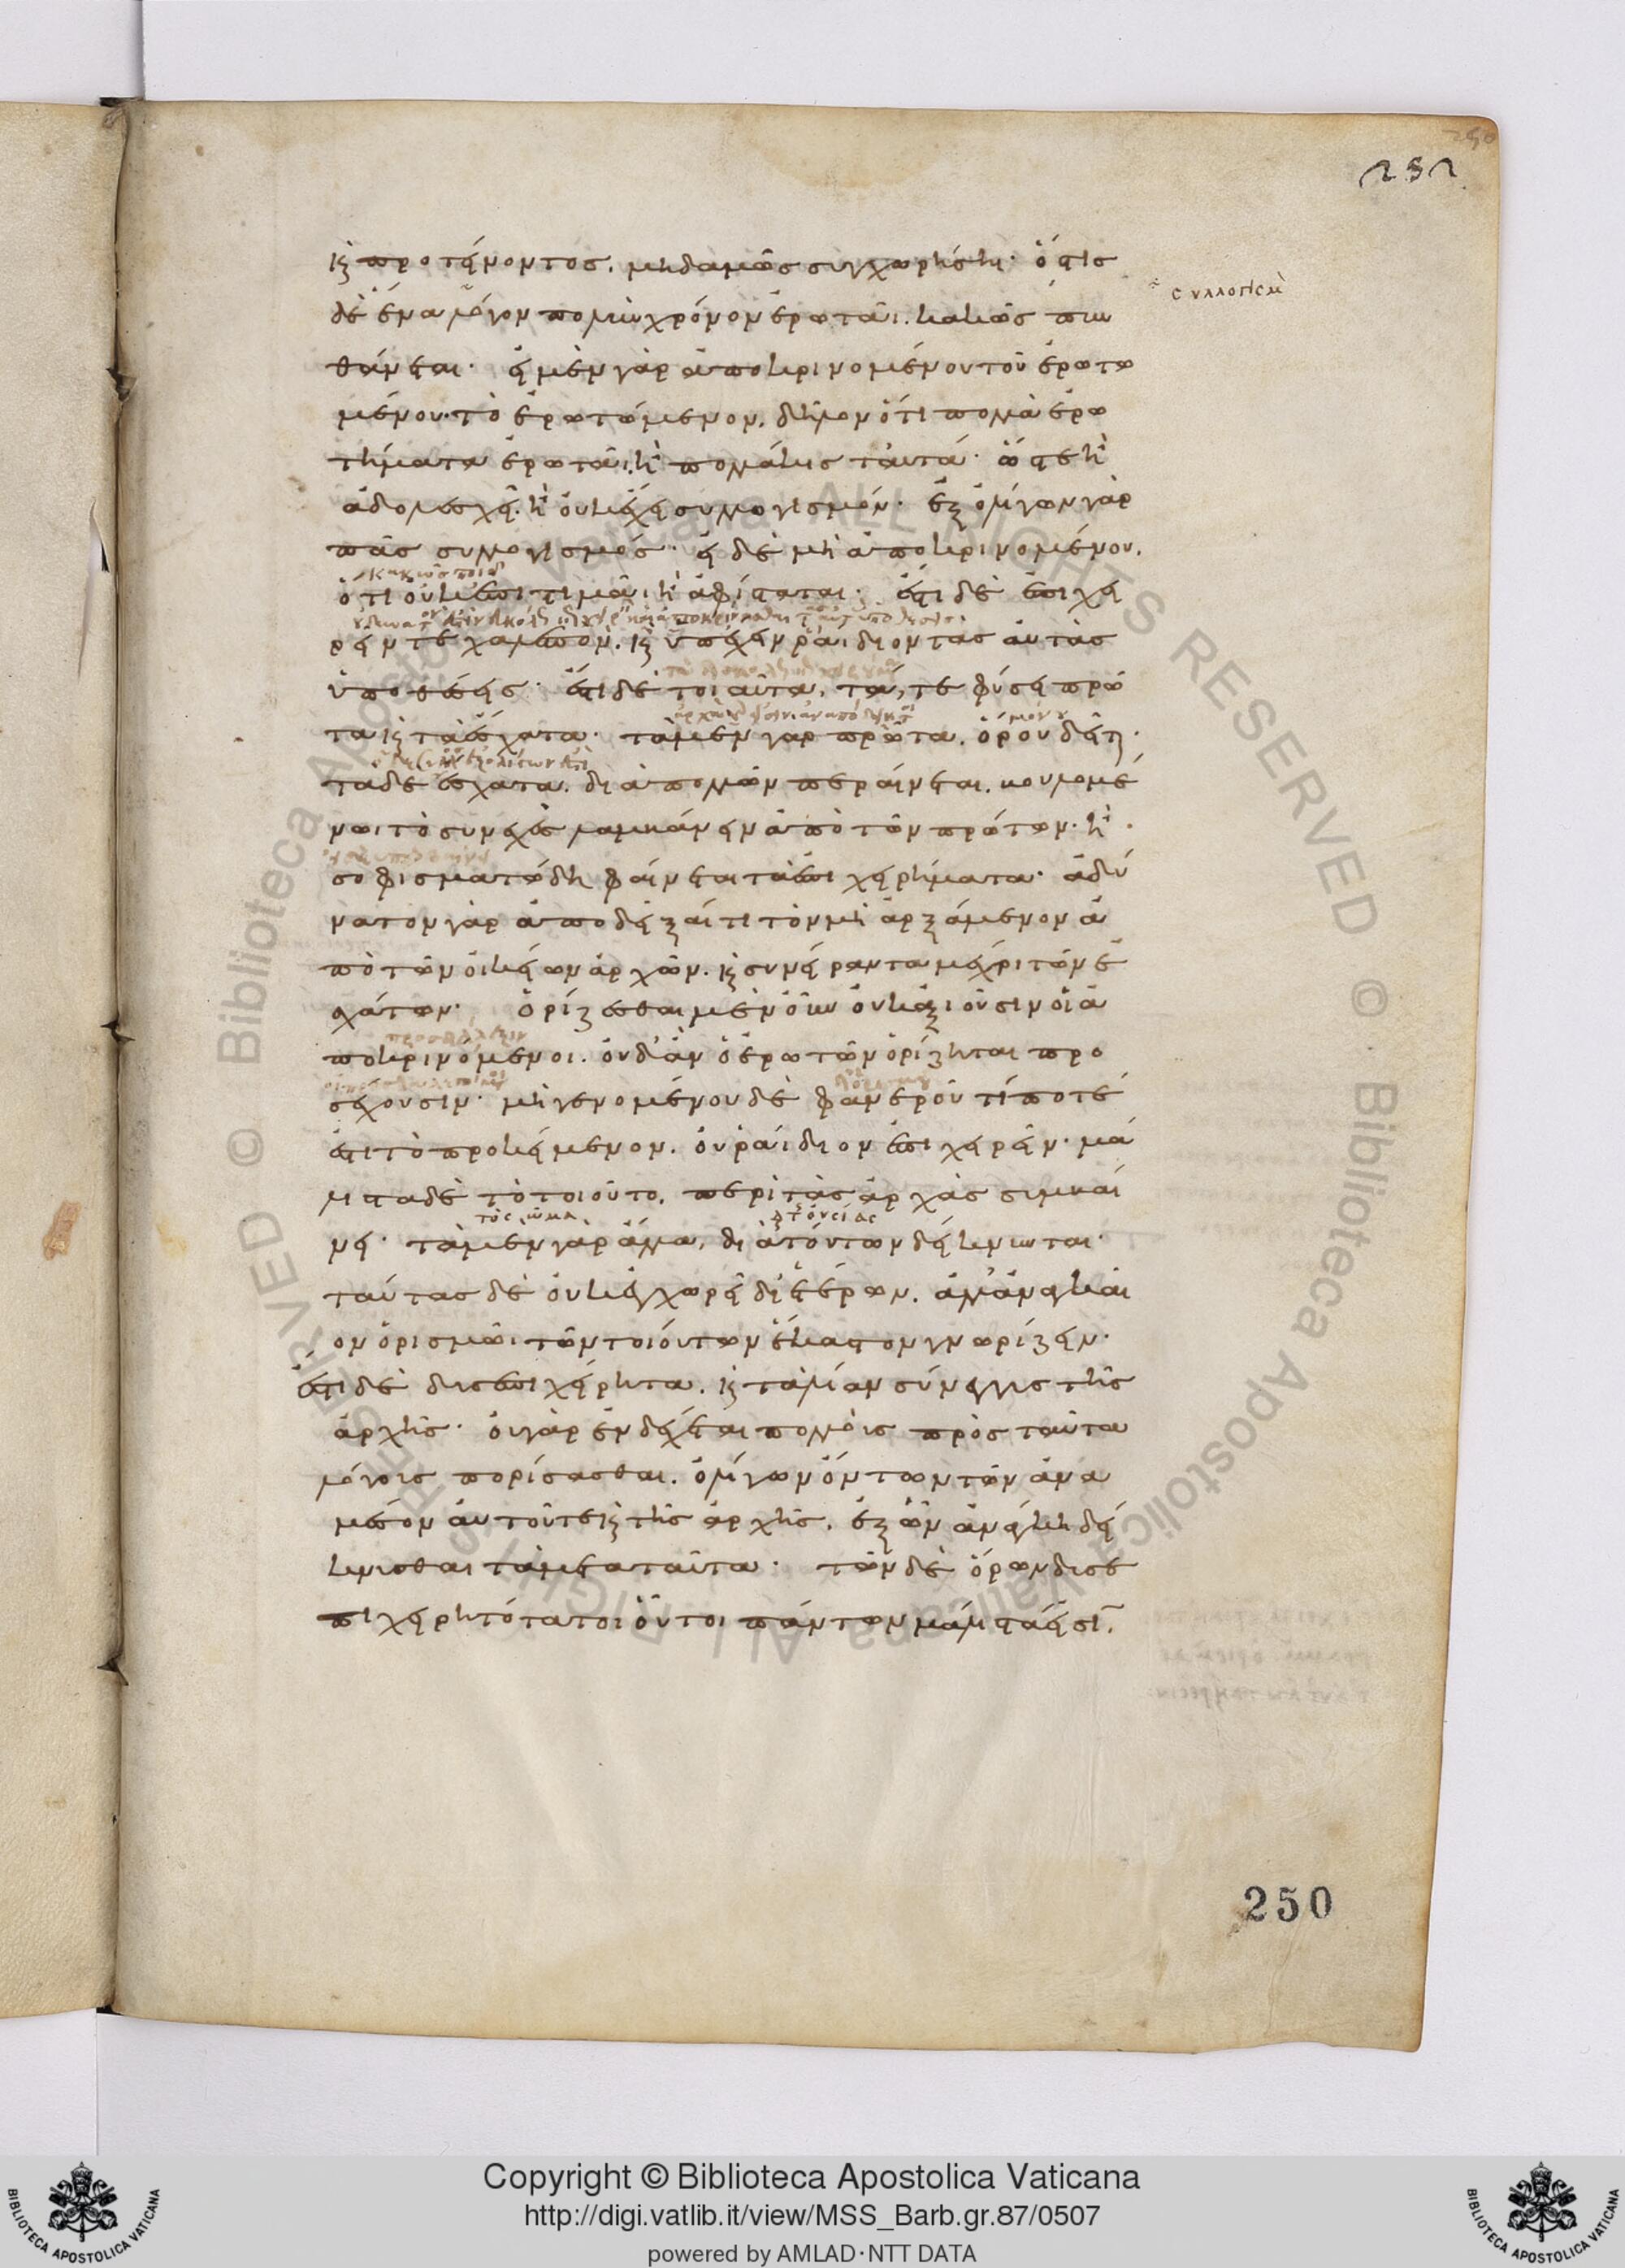 252
καὶ προτείνοντος, μηδαμῶς συγχωρήσῃ· ὅστις
συλλογισμὸ
δὲ ἕνα λόγον πολὺν χρόνον ἐρωτᾶι, κακῶς πυν
θάνεται· εἰ μὲν γὰρ ἀποκρινομένου τοῦ ἐρωτω
μένου τὸ ἐρωτώμενον, δῆλον ὅτι πολλὰ ἐρω
τήματα ἐρωτᾶι, ἢ πολλάκις ταυτά· ὥστε ἢ
ἀδολεσχεῖ, ἢ οὐκ ἔχει συλλογισμόν· ἐξ ὀλίγων γὰρ
πᾶς συλλογισμός· εἰ δὲ μὴ ἀποκρινομένου,
κακῶς ποιεῖ
ὅτι οὐκ ἐπιτιμᾶι ἢ ἀφίσταται· ἔστι δὲ ἐπιχει
ρεῖν τε χαλεπὸν, καὶ ὑπέχειν ῥάιδιον τὰς αὐτὰς
ὑποθέσεις· ἔστι δὲ τοιαῦτα, τά, τε φύσει πρῶ
τα καὶ τὰ ἔσχατα· τὰ μὲν γὰρ πρῶτα, ὅρου δεῖται·
τὰ δὲ ἔσχατα, διὰ πολλῶν περαίνεται, βουλομέ
νωι τὸ συνεχὲς λαμβάνειν ἀπὸ τῶν πρώτων· ἢ
σοφισματώδη φαίνεται τὰ ἐπιχειρήματα· ἀδύ
νατον γὰρ ἀποδεῖξαί τι τὸν μὴ ἀρξάμενον ἀ
πὸ τῶν οἰκείων ἀρχῶν, καὶ συνείραντα μέχρι τῶν ἐ
σχάτων· ὁρίζεσθαι μὲν οὖν οὐκ ἀξιοῦσιν οἱ ἀ
ποκρινόμενοι, οὐδ' ἂν ὁ ἐρωτῶν ὁρίζηται προ
σέχουσιν· μὴ γενομένου δὲ φανεροῦ τί ποτέ
ἐστι τὸ προκείμενον, οὐ ῥάιδιον ἐπιχειρεῖν· μά
λιστα δὲ τὸ τοιοῦτο, περὶ τὰς ἀρχὰς συμβαί
τὸ σῶμα
νει· τὰ μὲν γὰρ ἄλλα, διὰ τούτων δείκνυται·
ταύτας δὲ οὐκ ἐγχωρεῖ δι' ἑτέρων, ἀλλ' ἀναγκαῖ
ον ὁρισμῶι τῶν τοιούτων ἕκαστον γνωρίζειν·
ἔστι δὲ δυσεπιχείρητα, καὶ τὰ λίαν σύνεγγυς τῆς
ἀρχῆς· οὐ γὰρ ἐνδέχεται πολλοὺς πρὸς ταῦτα
λόγους πορίσασθαι, ὀλίγων ὄντων τῶν ἀνα
μέσον αὐτοῦ τε καὶ τῆς ἀρχῆς, ἐξ ὧν ἀνάγκη δεί
κνυσθαι τὰ μετὰ ταῦτα· τῶν δὲ ὅρων δυσε
πιχειρητότατοι οὗτοι πάντων μάλιστά εἰσι,
250
Copyright © Biblioteca Apostolica Vaticana
http://digi.vatlib.it/view/MSS_Barb.gr.87/0507
powered by AMLAD·NTT DATA